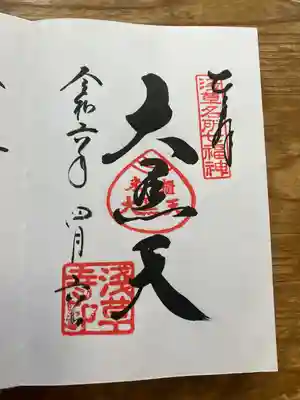 奉拝
浅草名所七福神
大黒天
令和六年四月六日
浅草寺印